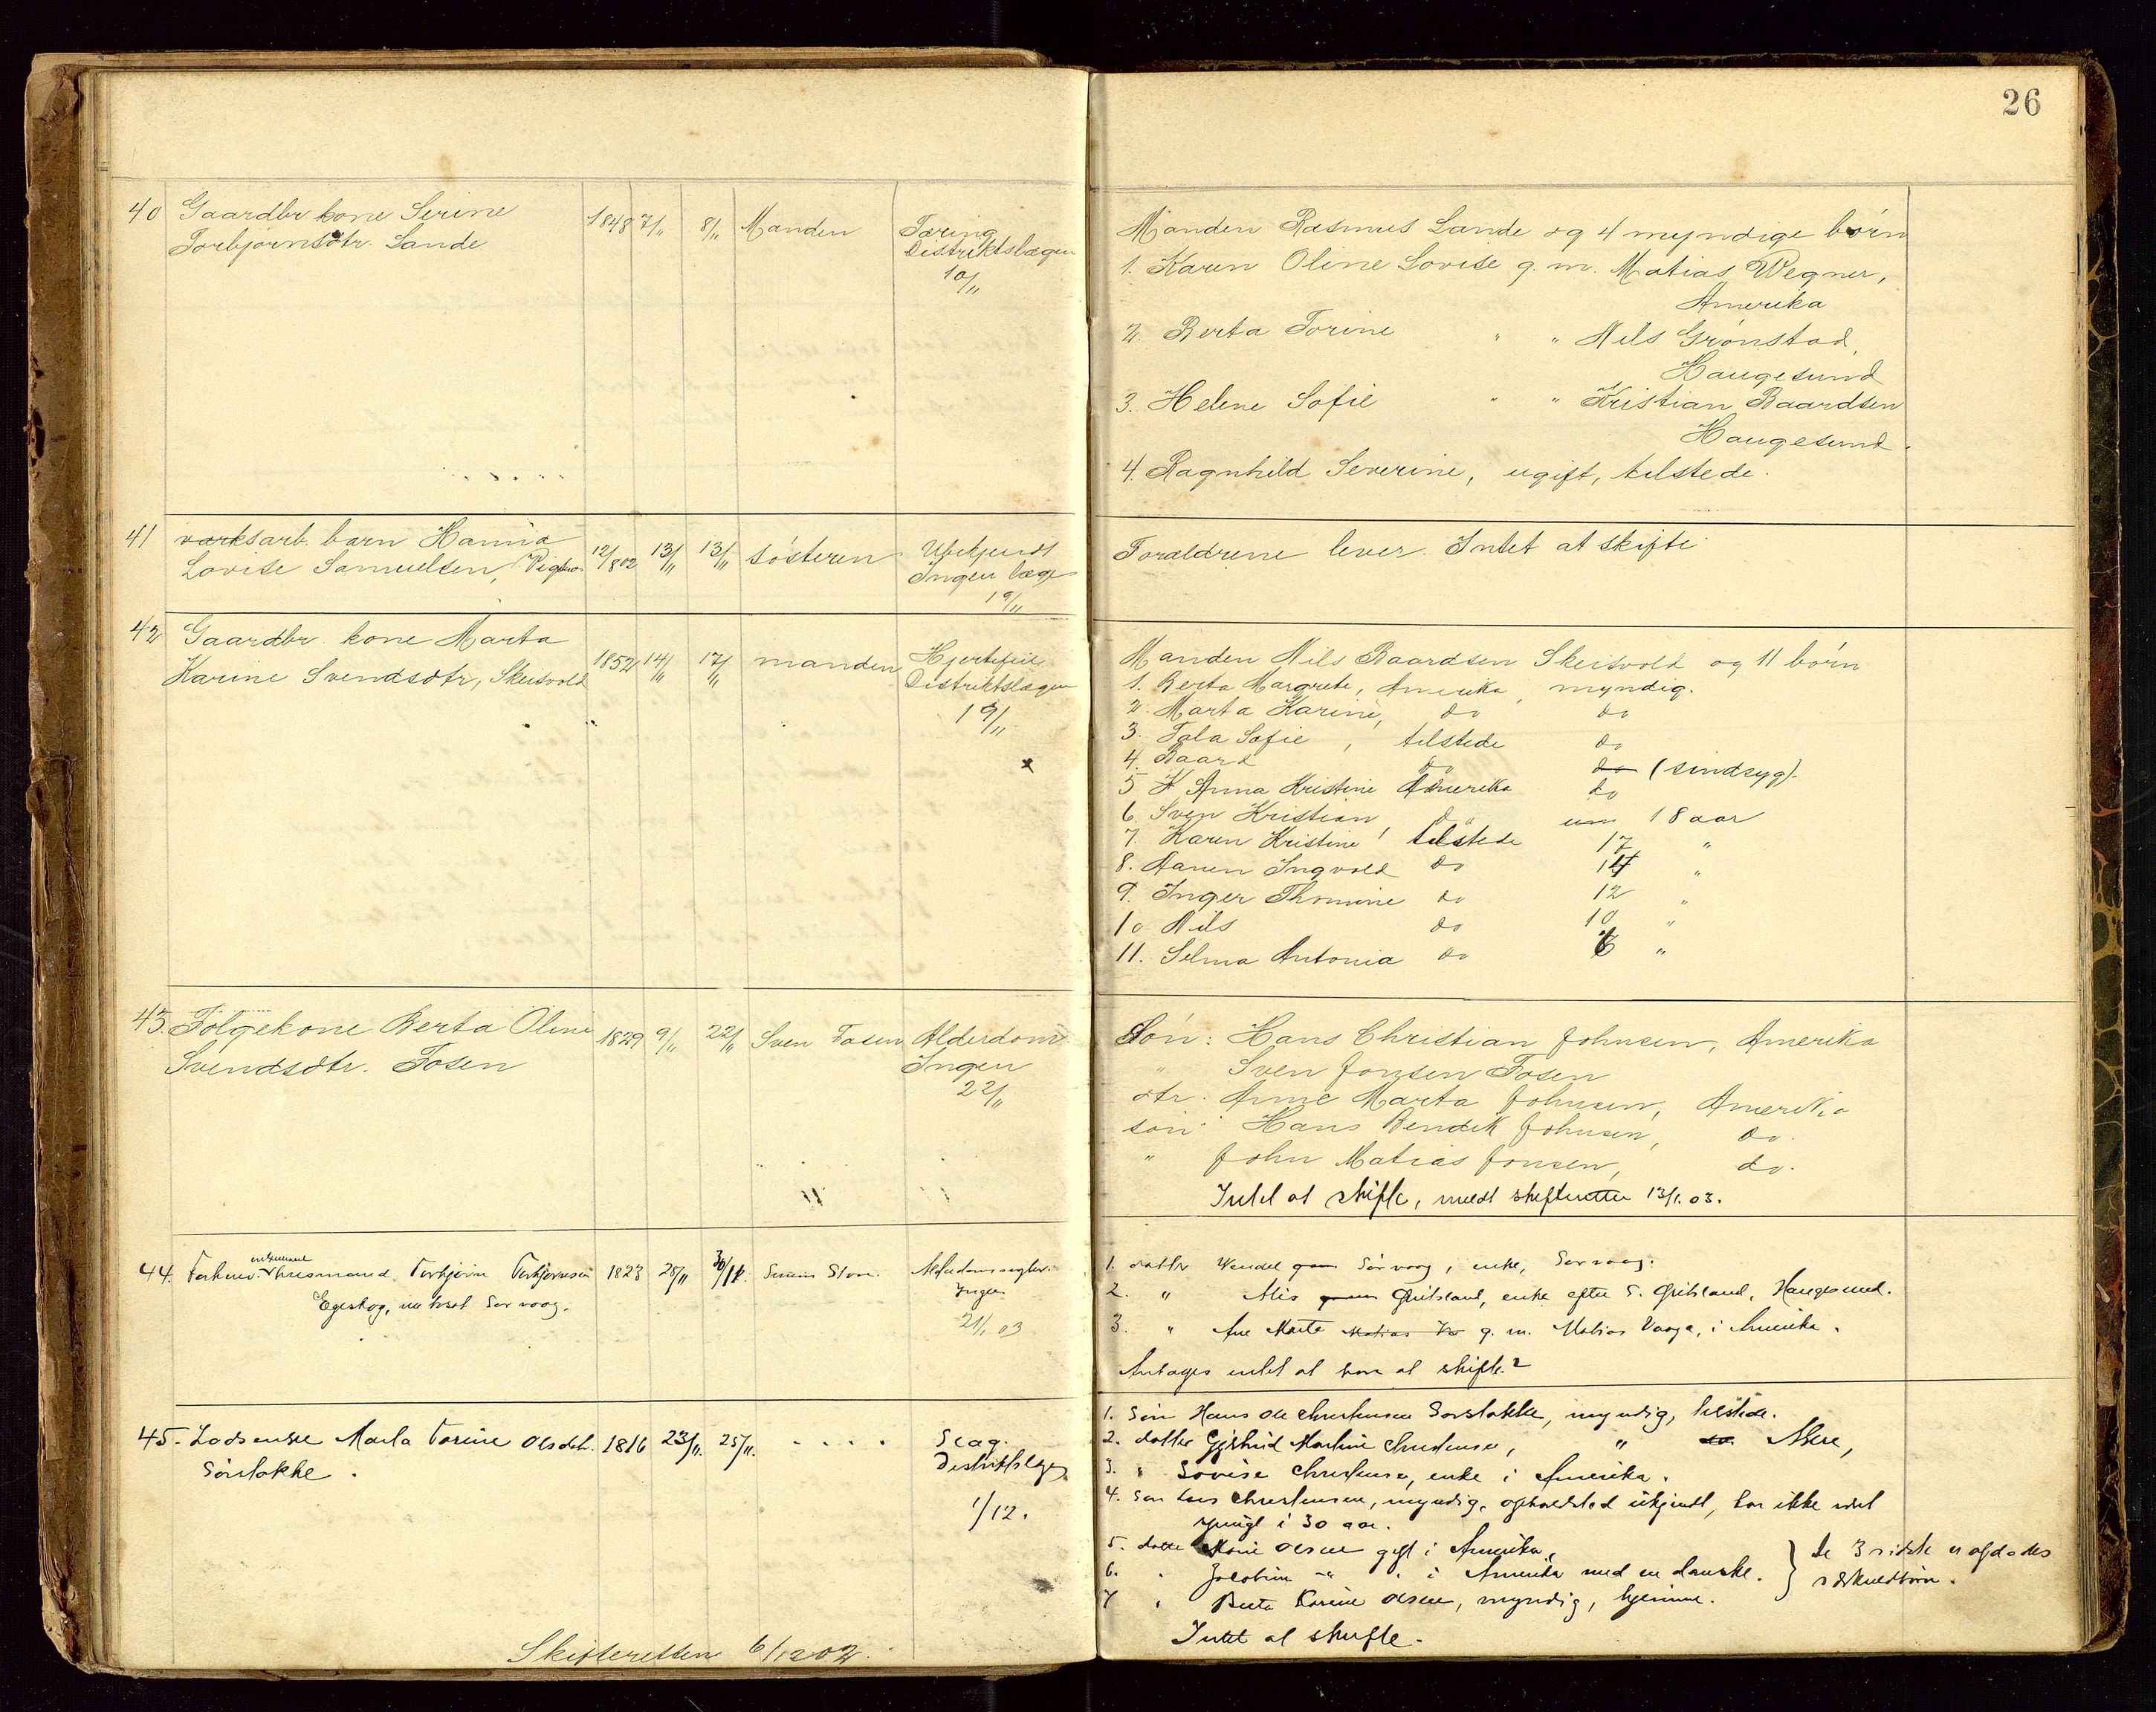 26
40 Gaardbr kone Serine
Torbjørnsdtr. Sande
1848 7/11 8/11 Manden Tæring
Distriktslægen
10/11
Manden Rasmus Sande og 4 myndige børn
1. Karen Oline Lovise g. m. Matias Wegner,
Amerika
2. Berta Torine " " Nils Grønstad,
Haugesund
3. Helene Sofie " " Kristian Baardsen
Haugesund.
4. Ragnhild Severine, ugift, tilstede.
41 varksarb. barn Hanna
Lovise Samuelsen,
12/8 02 13/11 13/11 søsteren Ubekjendt
Ingen læge
19/11
Forældrene lever. Intet at skifte
42 Gaardbr. kone Marta
Karine Svendsdtr, Skeisvold
1852 14/11 17/11 manden Hjertefeil
Distriktslægen
19/11
Manden Nils Baardsen Skeisvold og 11 børn
1. Berta Margrete, Amerika, myndig.
2. Marta Karine, do do
3. Tala Sofie, tilstede do
4. Baard do do (sindsyg).
5 Anna Kristine Amerika do
6. Sven Kristian, do um 18 aar
7. Karen Kristine tilstede 17 "
8. Aanen Ingvald do 14 "
9. Inger Thomine do 12 "
10 Nils do 10 "
11. Selma Antonia do 6 "
43. Følgekone Berta Oline
Svendsdtr. Fosen
1829 9/11 22/11 Sven Fosen Alderdom
Ingen
22/11
Søn: Hans Christian Johnsen, Amerika
" Sven Jonsen Fosen
dtr. Anne Marta Johnsen, Amerika
søn: Hans Bendik Johnsen, do.
" John Matias Jonsen, do.
Intet at skifte, meldt skifteretten 13/1.03.
44. Forhenv. husmand Torbjørn Torbjørnsen
enkemand
Egeskog,
1823 28/11 Alderdomssvaghet.
Ingen
21/1 03
1. datter Sørvaag, enke, Sørvaag.
2. " Grindsland, enke efter S. Grindsland, Haugesund.
3. " Ane Marta g. m. Matias Vaaga, i Amerika.
Antages intet at være at skifte?
45. Lodsenke Marta Torine Olsdtr.
Sørstokke.
1816 23/11. 25/11. - - - - Slag.
Distriktslægen
1/12.
1. Søn Hans Ole Christensen Sørstokke, myndig, tilstede.
2. datter Gjertrud Martine Christensen, " do
3. " Lovise Christensen, enke i Amerika.
4. Søn Lars Christensen, myndig, opholdsted ukjendt, har ikke
i 30 aar.
5. datter Marie Olsen gift i Amerika,
6. " Jacobine " " i Amerika med en danske.
7 " Berta Karine Olsen, myndig, hjemme.
} De 3 sidste er afdødes
særkuldbørn.
Intet at skifte.
Skifteretten 6/12 02.